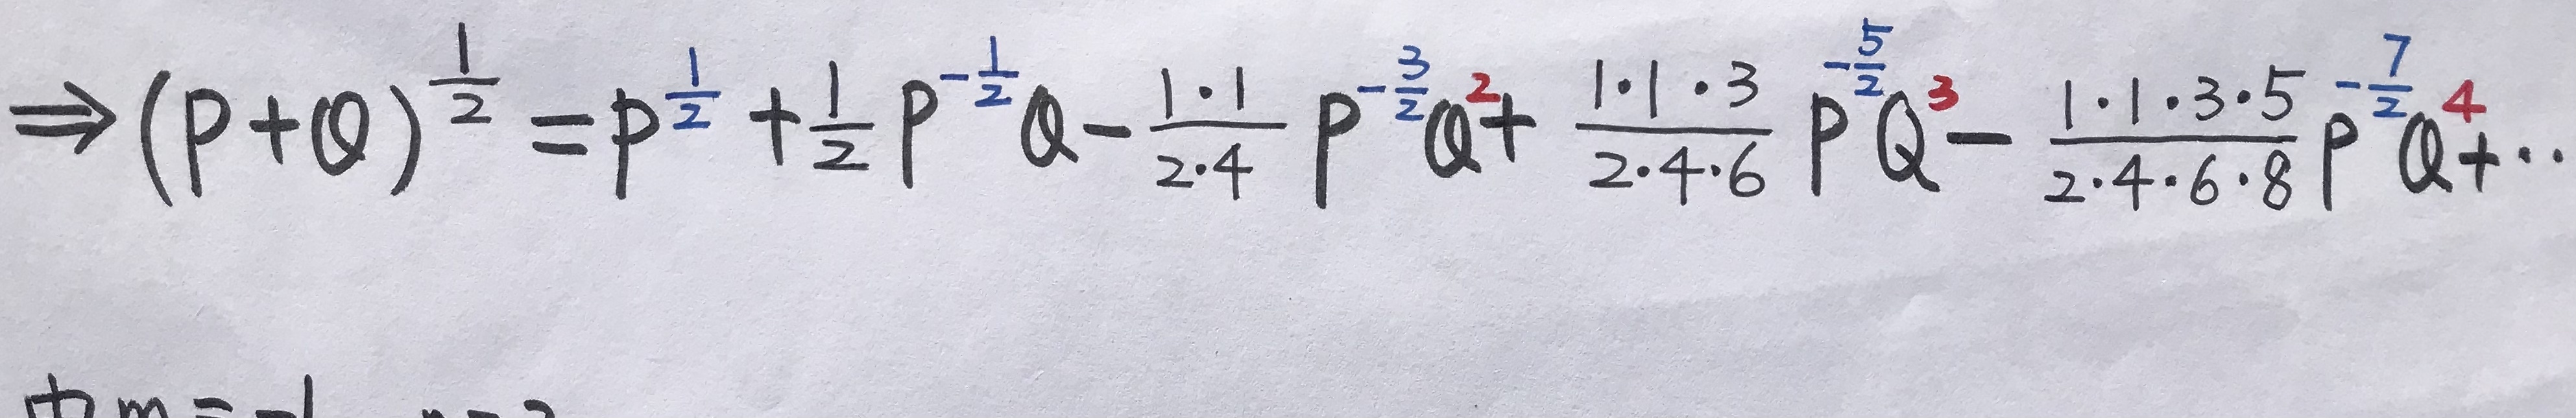 ⇒(P+Q)^{\frac{1}{2}}=P^{\frac{1}{2}}+\frac{1}{2}P^{-\frac{1}{2}}Q-\frac{1·1}{2·4}P^{-\frac{3}{2}}Q^{2}+\frac{1·1·3}{2·4·6}P^{-\frac{5}{2}}Q^{3}-\frac{1·1·3·5}{2·4·6·8}P^{-\frac{7}{2}}Q^{4}+··
m=-1